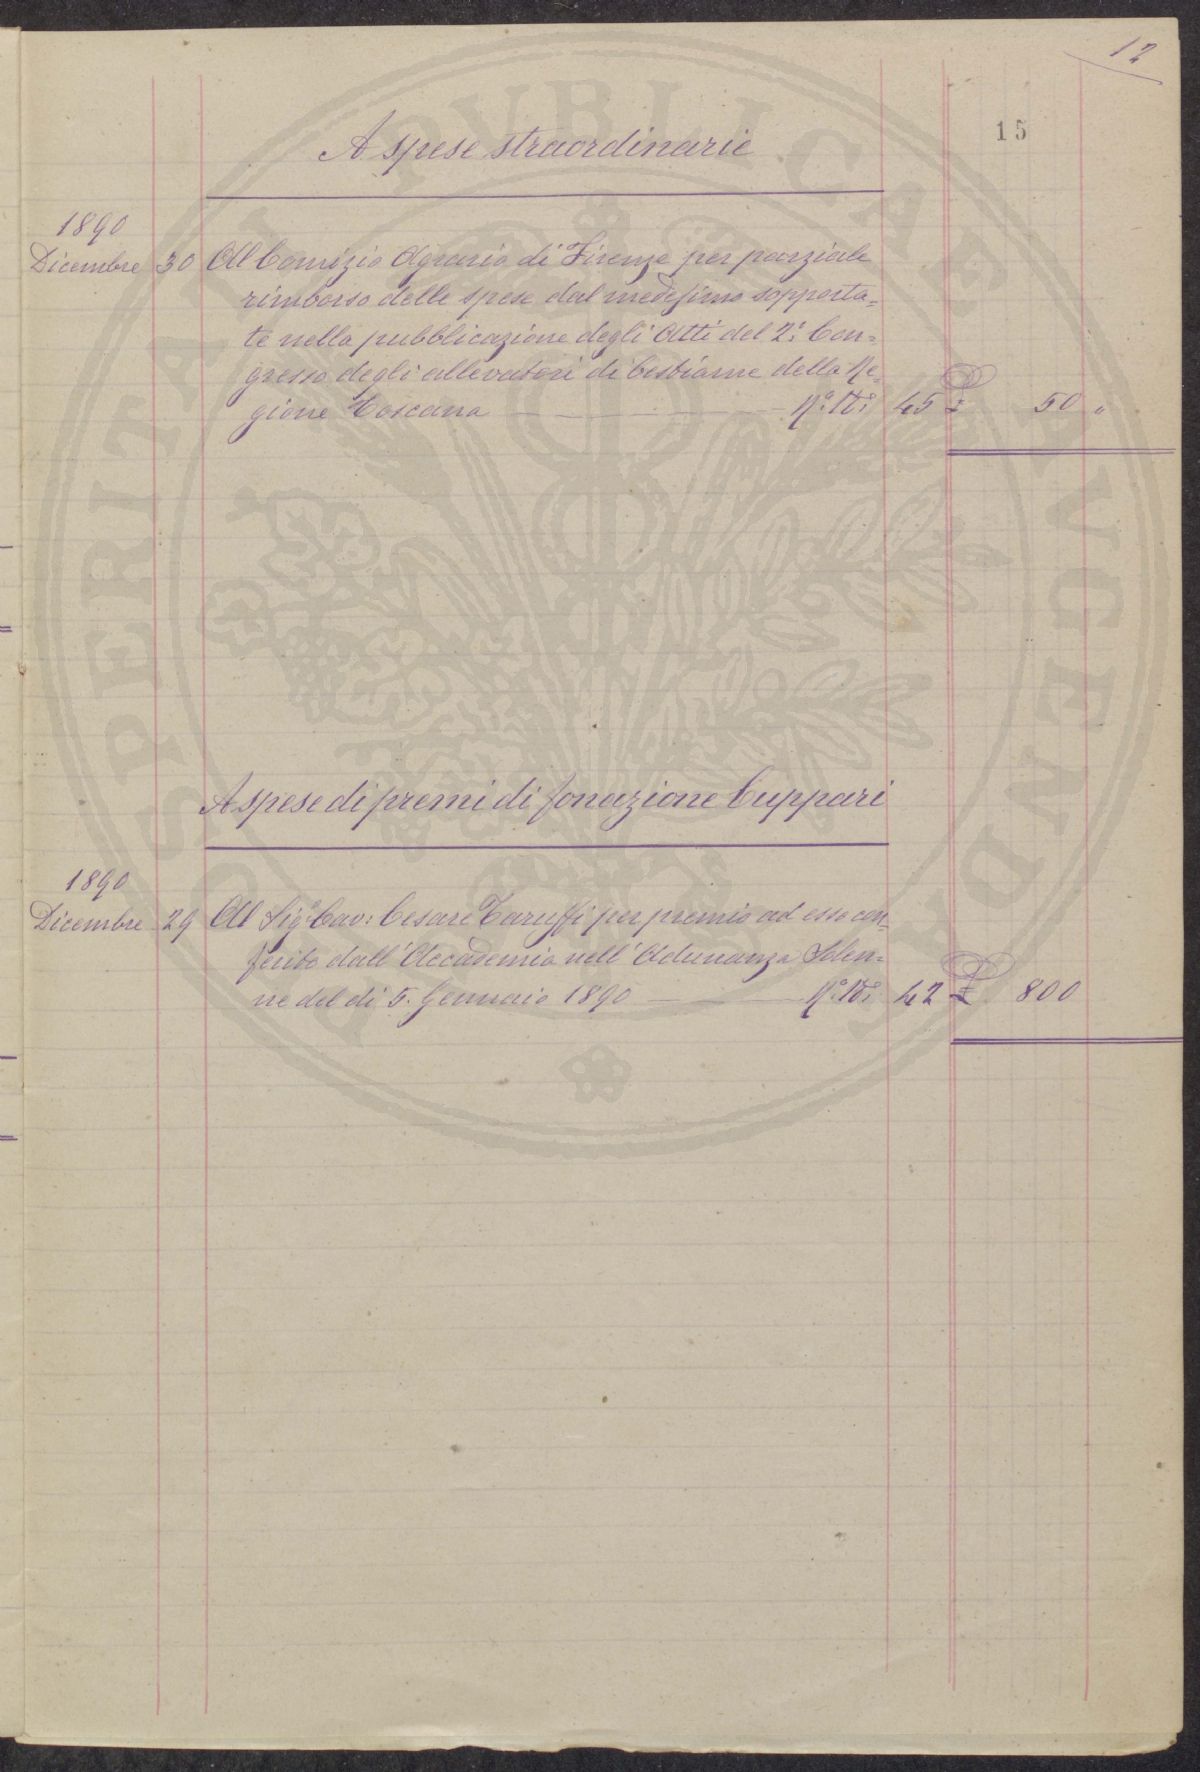 12
15
A spese straordinarie
1890
Dicembre 30 Al Comizio Agrario di Firenze per parziale
rimborso delle spese dal medesimo sopporta=
te nella pubblicazione degli Atti del 2.° Con=
gresso degli allevatori di bestiame della Re=
gione Toscana 45 £ 50 "
A spese di premi di fonazione Cuppari
1890
Dicembre 29 Al Sig.r Cav: Cesare Taruffi per premio ad esso con=
ferito dall'Accademia nell'Adunanza Solen=
ne del dì 5. Gennaio 1890 42 £ 800
PROSPERITATI PVBLICAE AVGENDAE